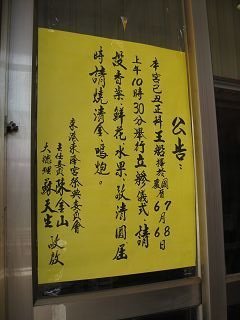 公告：
本宮己丑正科王船擇於國曆7月8日
上午10時30分舉行立艤儀式，請
設香案鮮花水果、敬清圓屆
時請燒清金鳴炮。
東港東隆宮祭典委員會
主任委員 陳金山
大總理 蘇天生 敬啟